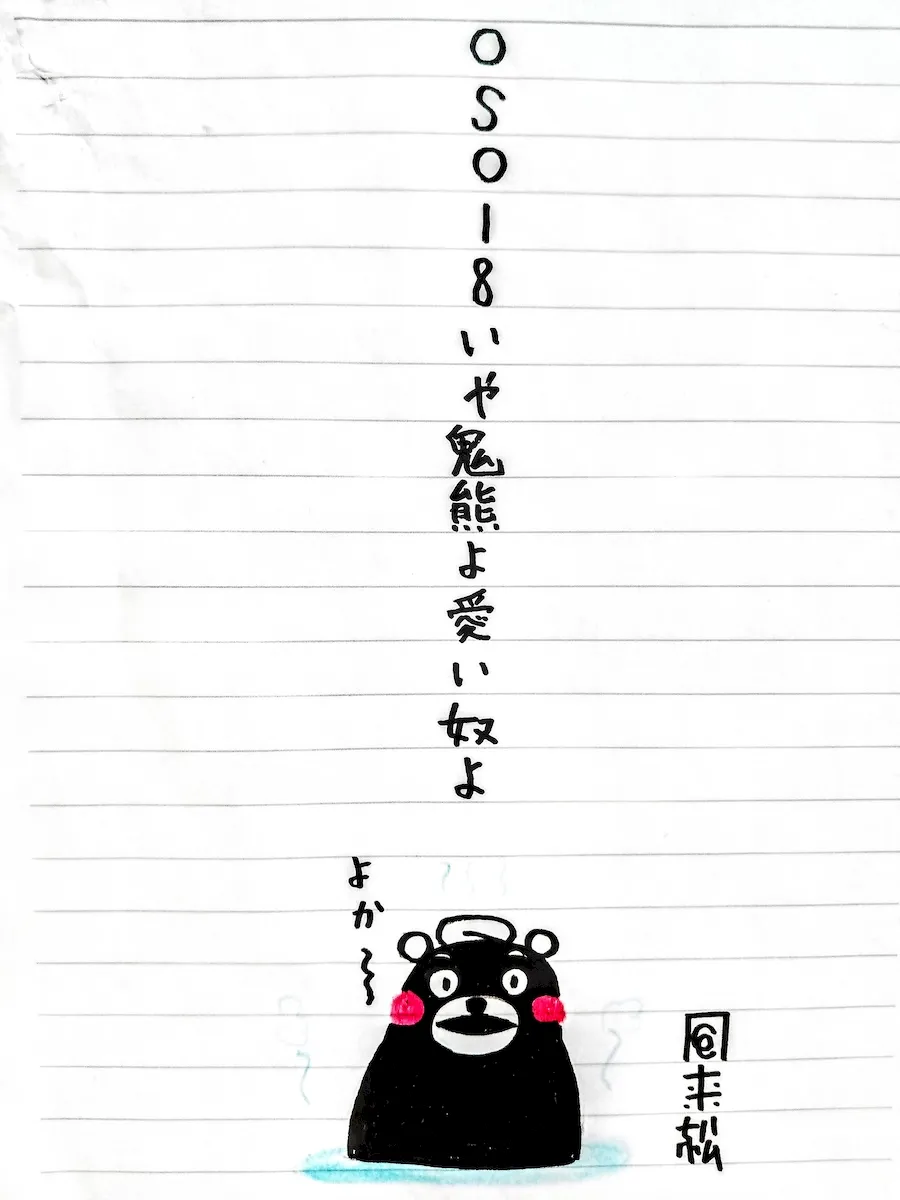 OSO18いや鬼熊よ愛い奴よ
よか〜